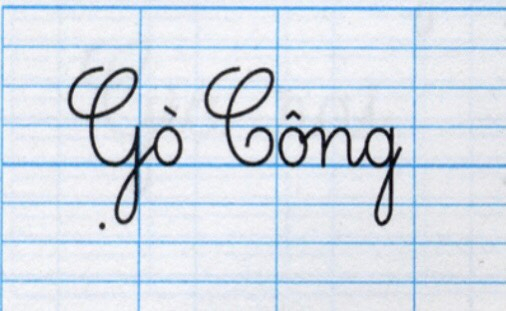 Gò Công